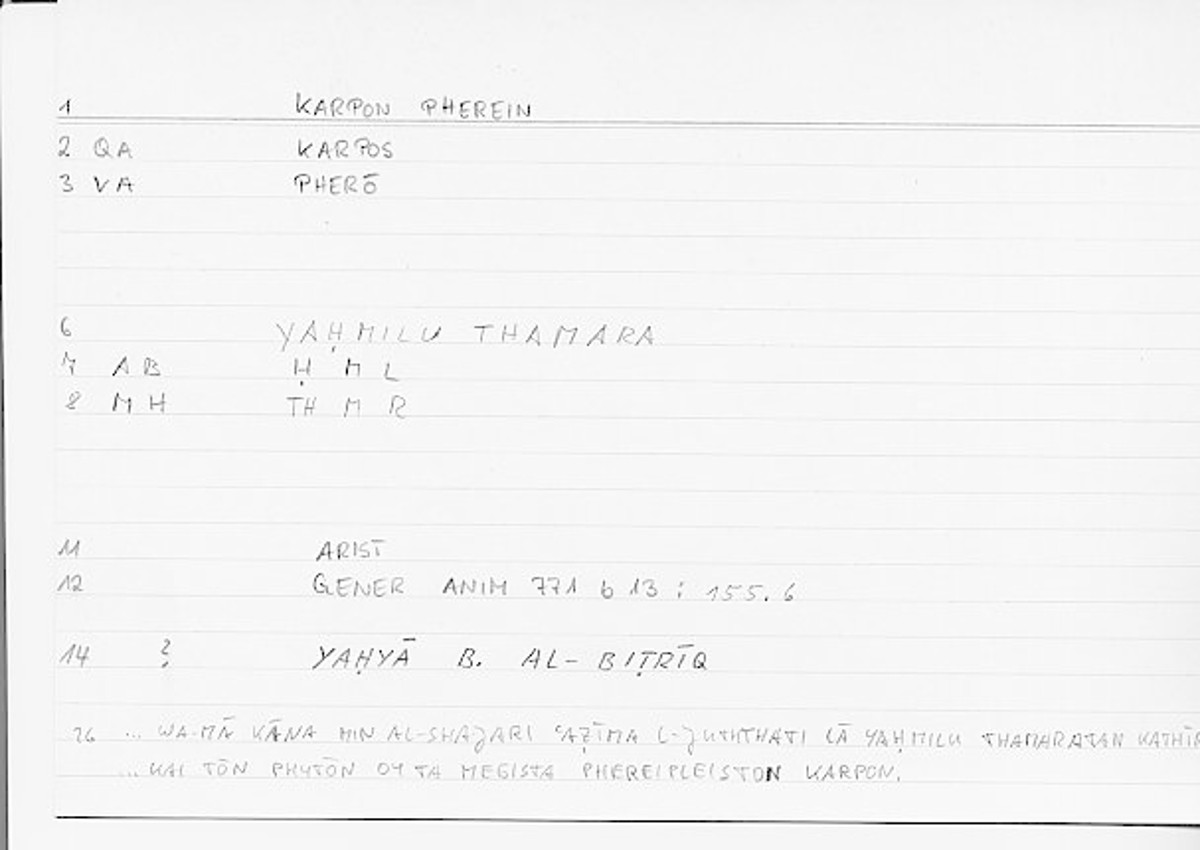 1 KARPON PHEREIN
2 QA KARPOS
3 VA PHERŌ
6 YAḤMILU THAMARA
7 AB Ḥ M L
8 MH TH M R
11 ARIST
12 GENER ANIM 771 b 13 ; 155.6
14 ? YAḤYĀ B. AL-BIṬRĪQ
26 ... WA-MĀ KĀNA MIN AL-SHAJARI ʿAẒĪMA L-JUTHTHATI LĀ YAḤMILU THAMARATAN KATHĪR
... KAI TŌN PHYTŌN OY TA MEGISTA PHEREI PLEISTON KARPON.